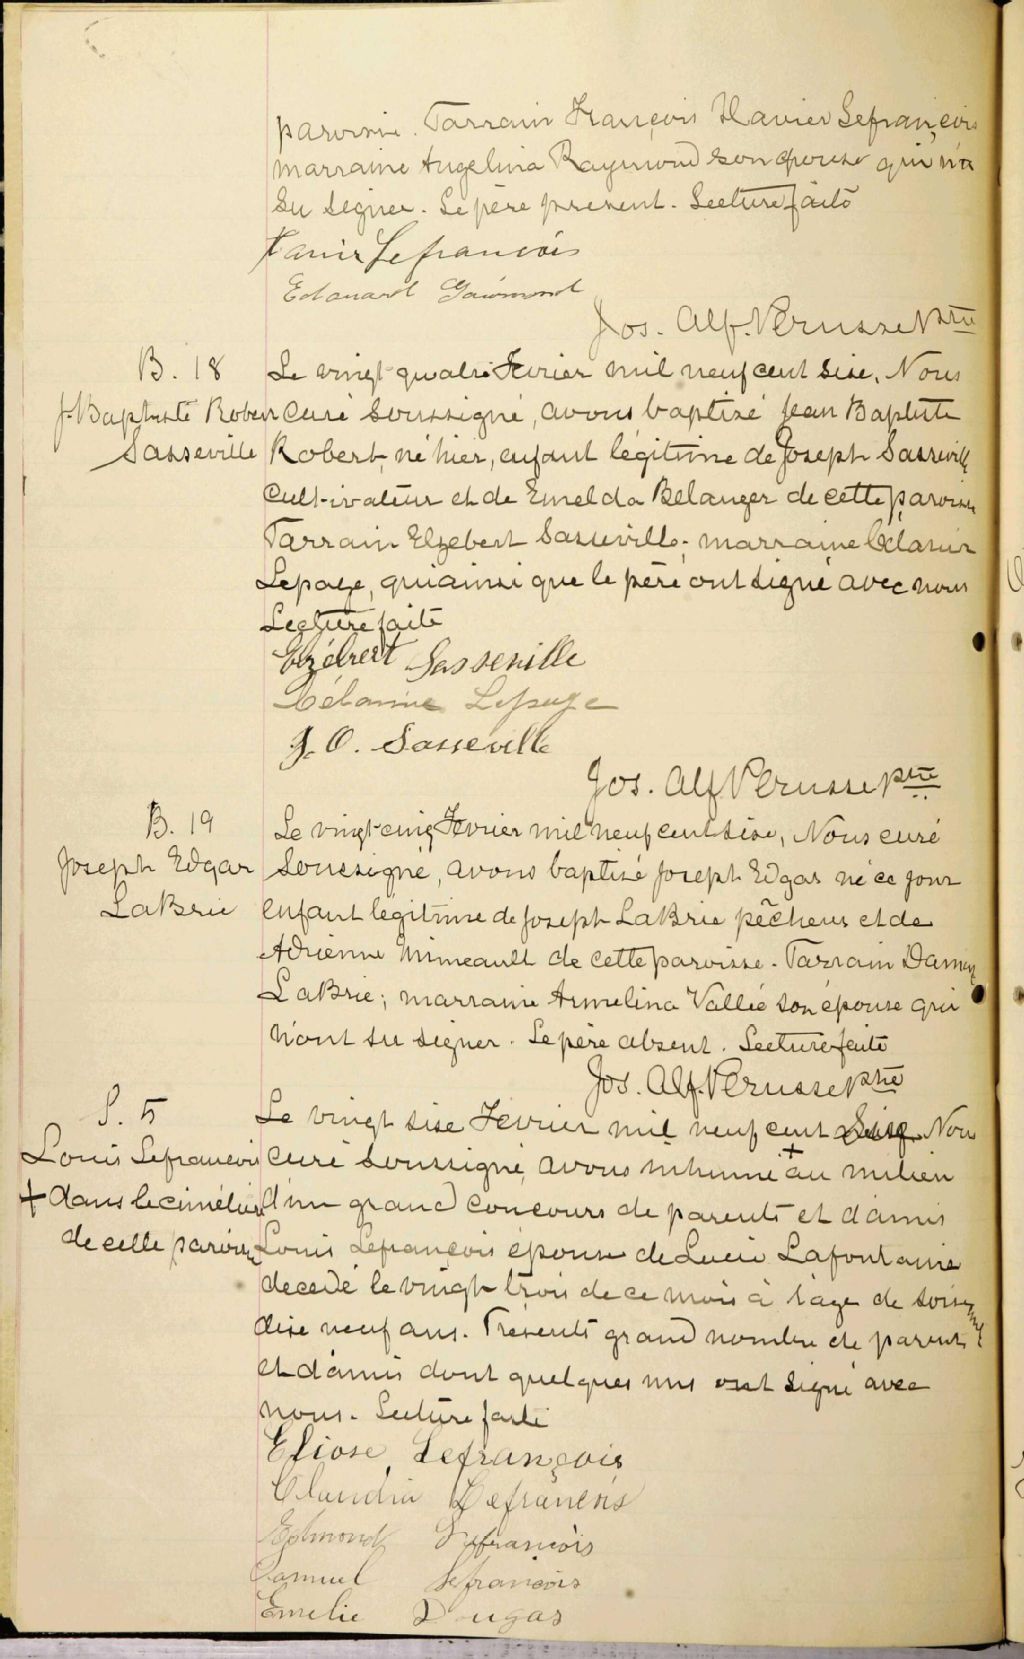 paroisse. Parrain François Xavier Lefrançois
marraine Angelina Raymond son épouse qui n'a
su signer. Le père présent. Lecture faite
Xavier Lefrancois
Edouard
Jos. Alf. Pérusse Ptre
B. 18
J. Baptiste Robert
Sasseville
Le vingt quatre Fevrier mil neuf cent sise, Nous
curé soussigné, avons baptisé Jean Baptiste
Robert, né hier, enfant légitime de Joseph Sasseville
cultivateur et de Emelda Bélanger de cette paroisse
Parrain Elzebert Sasseville; marraine Célanire
Lepage, qui ainsi que le père ont signé avec nous
Lecture faite
Elzébert Sasseville
Célanire Lepage
J. O. Sasseville
Jos. Alf. Pérusse Ptre
B. 19
Joseph Edgar
LaBrie
Le vingt-cinq Fevrier mil neuf cent sise, Nous curé
soussigné, avons baptisé Joseph Edgar né ce jour
enfant légitime de Joseph LaBrie pêcheur et de
Adrienne Mimeault de cette paroisse. Parrain Damase
LaBrie; marraine Armelina Vallée son épouse qui
n'ont su signer. Le père absent. Lecture faite
Jos. Alf. Pérusse Ptre
S. 5
Louis Lefrancois
+ dans le cimétière
de cette paroisse
Le vingt sise Fevrier mil neuf cent sise Nous
curé soussigné, avons inhumé + au milieu
d'un grand concours de parents et d'amis
Louis Lefrançois époux de Luce Lafontaine
decedé le vingt trois de ce mois à l'age de soisente
dise neuf ans. Présents grand nombre de parents
et d'amis dont quelques uns ont signé avec
nous. Lecture faite
Eliose Lefrançois
Claudia Lefrancois
Edmond Lefrancois
Samuel Lefrancois
Emelie Dugas